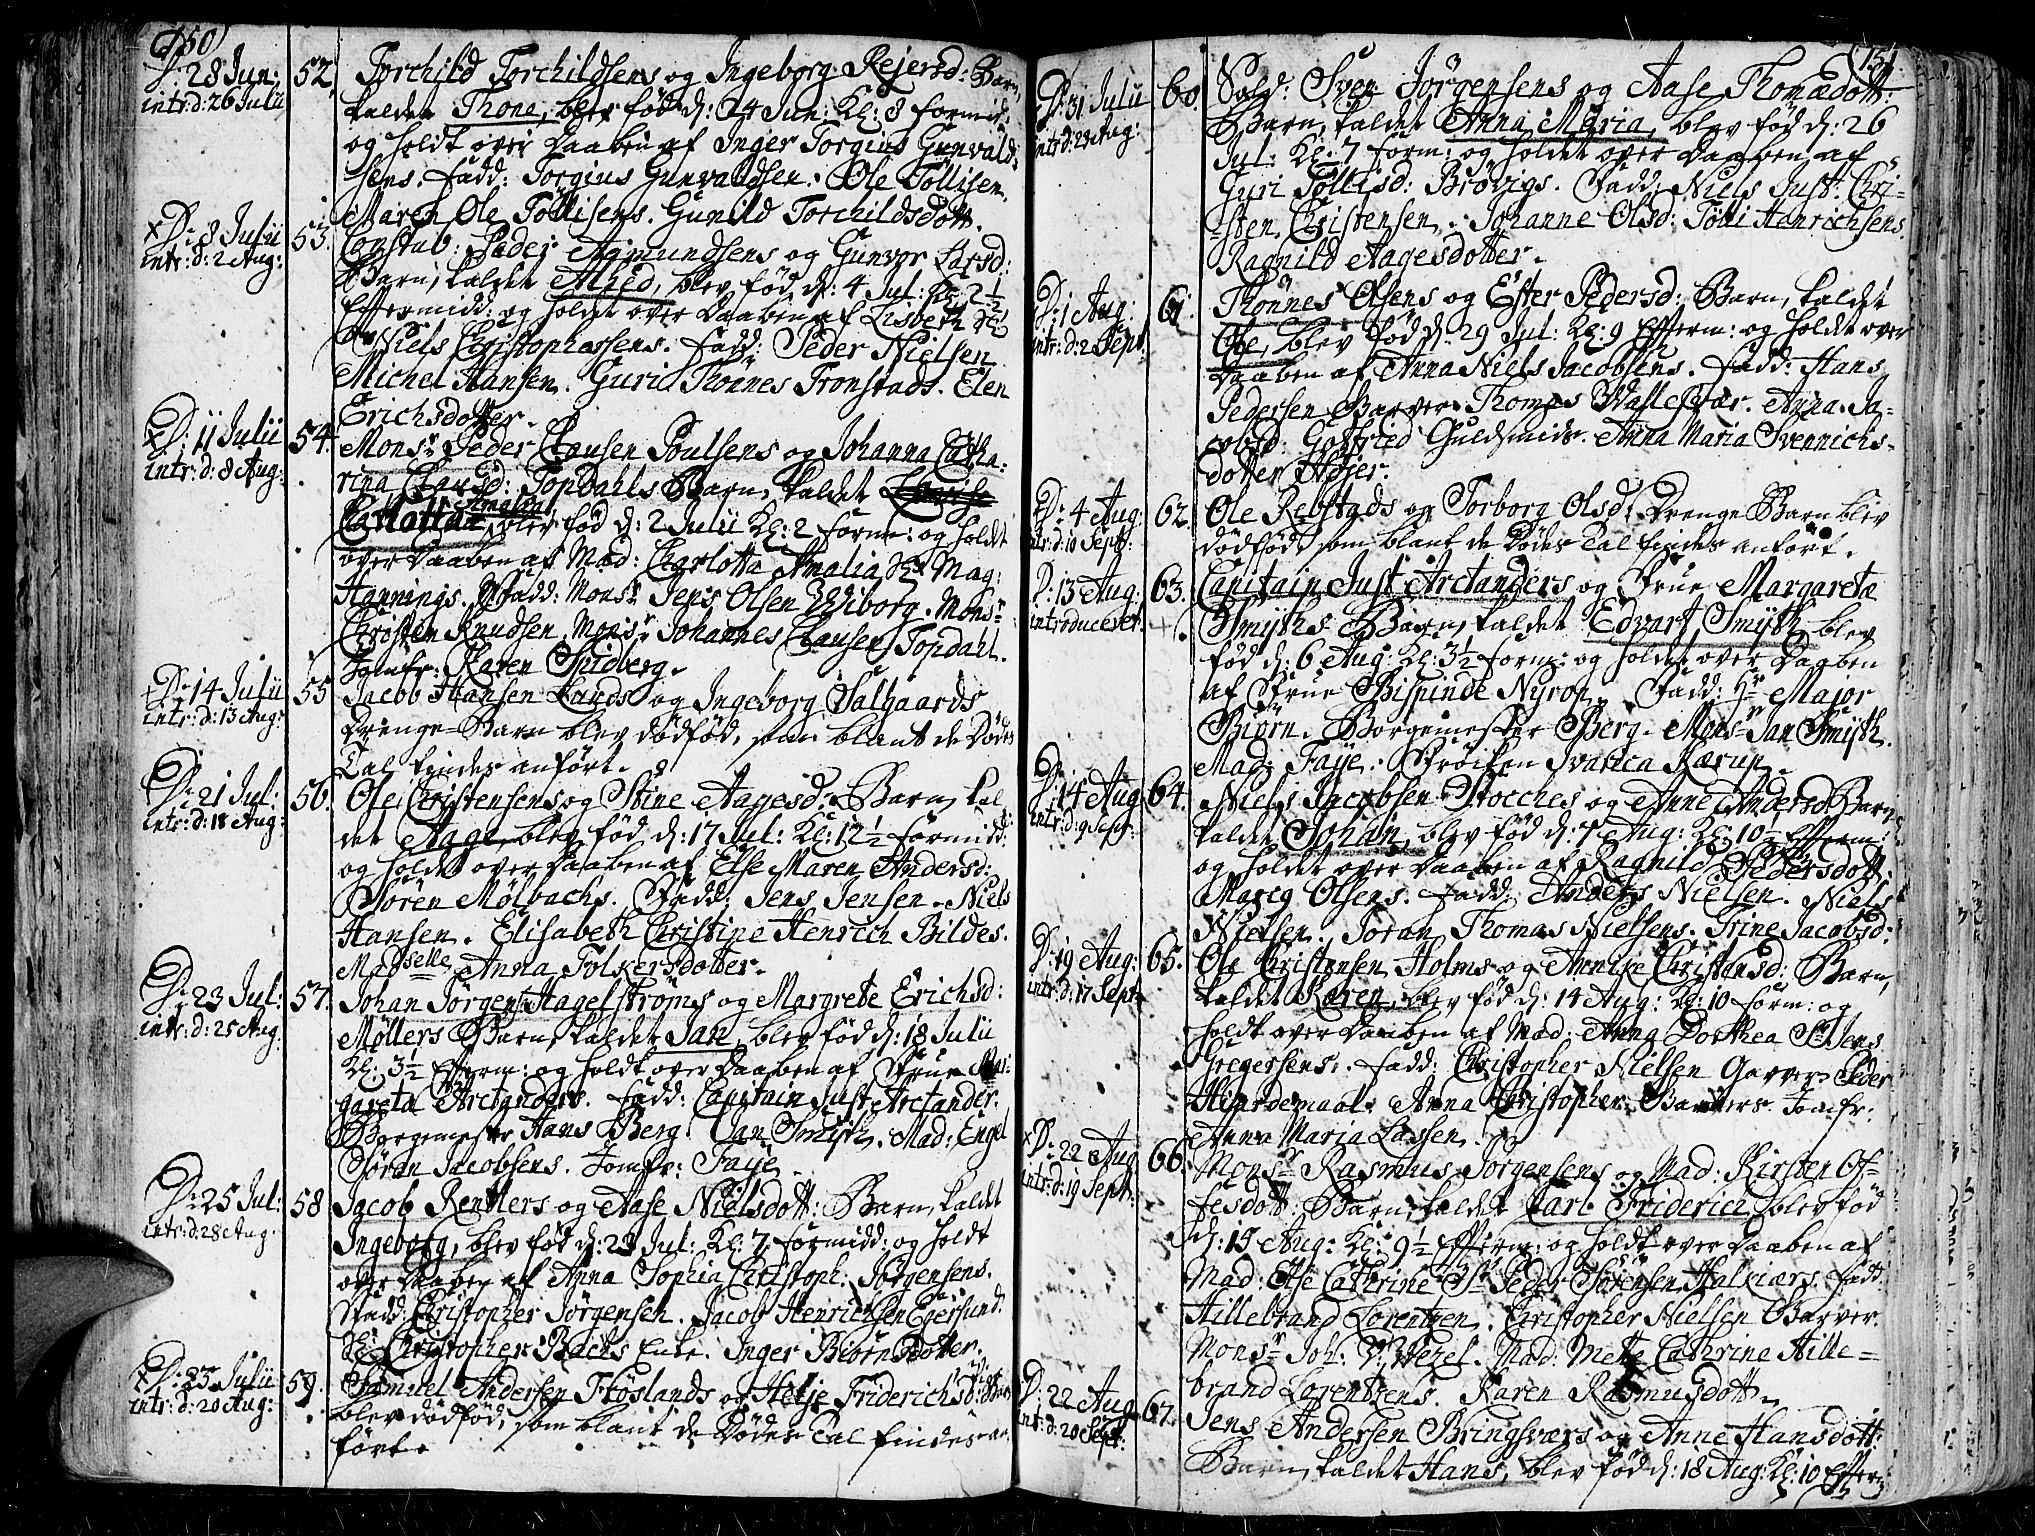 150)
D: 28 Jun: 52. Torchild Torchildsens og Ingeborg Rejersd: Barn,
intr: d: 26 Julii kaldet Thone, blev fød d: 24 Jun: Kl: 8 formid:
og holdt over Daaben af Inger Torgius Gunvald-
sens. Fadd: Torgius Gunvaldsen. Ole Tollisen.
Maren Ole Tollisens. Gunild Torchildsdott.
D: 8 Julii 53. Constab: Peder Agmundsens og Gunvor Larsd:
intr: d: 2 Aug: Barn, kaldet Alied, blev fød d: 4 Jul: Kl: 2 1/2
Eftermidd: og holdt over Daaben af Lisbeth
Niels Christophersens. Fadd: Peder Nielsen
Michel Hansen. Guri Thonnes Tronstads. Elen
Erichsdotter.
D: 11 Julii 54. Monsr Peder Clausen Poulsens og Johanna Catha-
intr: d: 8 Aug: rina Clausd: Topdahls Barn, kaldet
Carlotta Amalia, blev fød d: 2 Julii Kl: 2 form: og holdt
over Daaben af Mad: Charlotta Amalia Mag:
Hannings. Fadd: Monsr Jens Olsen Wiborg. Monsr
Christen Knudsen. Monsr Johannes Clausen Topdahl.
Jomfr: Karen Spidberg.
D: 14 Julii 55 Jacob Hansen Lunds og Ingeborg Salgaards
intr: d: 13 Aug: Drenge-Barn blev dødfød, som blant de Dødes
Tal findes anført.
D: 21 Jul: 56. Ole Christensens og Stine Aagesd: Barn, kal-
intr: d: 18 Aug: det Aage, blev fød d: 17 Jul: Kl: 12 1/2 formidd:
og holdt over Daaben af Else Maren Andersd:
Søren Mølbachs. Fadd: Jens Jensen. Niels
Hansen. Elisabeth Christine Henrich Bildes.
Madselle Anna Folkersdotter.
D: 23 Jul: 57. Johan Jørgen Hagelstrøms og Margrete Erichsd:
intr: d: 25 Aug: Møllers Barn, kaldet Jan, blev fød d: 18 Julii
Kl: 3 1/2 Efterm: og holdt over Daaben af Frue Mar-
gareta Arctanders. Fadd: Capitain Just Arctander.
Borgemester Hans Berg. Jan Smith. Mad: Engel
Søran Jacobsens. Jomfr: Faye.
D: 25 Jul: 58 Jacob Rentlers og Aase Nielsdott: Barn, kaldet
intr: d: 28 Aug. Ingeborg, blev fød d: 23 Jul: Kl: 7 formidd: og holdt
over Daaben af Anna Sophia Christoph: Jørgensens.
Fadd: Christopher Jørgensen. Jacob Henrichsen Egersund.
Christopher Bachs Enke. Inger Biørnsdotter.
D: 23 Julii 59. Samuel Andersen Frøslands og Helje Friderichsd: Barn
intr: d: 20 Aug: blev dødfød, som blant de Dødes Tal findes an-
ført.
151.
D: 31 Julii 60. Sold: Sven Jørgensens og Aase Thomædott:
intr: d: 29 Aug: Barn, kaldet Anna Maria, blev fød d: 26
Jul: Kl: 7 form: og holdet over Daaben af
Guri Tollisd: Brovigs. Fadd: Niels Just: Chri-
sten Christensen. Johanne Olsd: Tolli Henrichsens.
Ragnild Aagesdotter.
D: 1 Aug: 61. Thonnes Olsens og Ester Pedersd: Barn, kaldet
intr: d: 2 Sept: Ole, blev fød d: 29 Jul: Kl: 9 Efterm: og holdt over
Daaben af Anna Niels Jacobsens. Fadd: Hans
Pedersen Barver. Thomas Wallesvær. Anna Ja-
cobsd: Gotfried Guldsmids. Anna Maria Svennichs-
dotter Høyer.
D: 4 Aug: 62. Ole Rebstads og Torborg Olsd: Drenge Barn blev
intr: d: 10 Sept: dødfødt, som blant de Dødes Tal findes anført.
D: 13 Aug: 63. Capitain Just Arctanders og Frue Margareta
introduceret. Smyths Barn, kaldet Edvart Smyth blev
fød d: 6 Aug: Kl: 3 1/2 form: og holdet over Daaben
af Frue Bispinde Nyrop. Fadd: Hr Major
Biørn. Borgemester Berg. Monsr Jan Smyth.
Mad: Faye. Frøiken Ivarica Kærup.
D: 14 Aug 64. Niels Jacobsen Stocches og Anne Andersd: Barn
intr: d: 9 Sept: kaldet Johan, blev fød d: 7 Aug: Kl: 10 Efterm:
og holdet over Daaben af Ragnild Pedersdott:
Marcg Olsens. Fadd: Anders Nielsen. Niels
Nielsen. Joran Thomas Nielsens. Trine Jacobsd:
D: 19 Aug: 65. Ole Christensen Holms og Annike Christansd: Barn,
intr: d: 17 Sept: kaldet Karen, blev fød d: 14 Aug: Kl: 10 form: og
holdt over Daaben af Mad: Anna Dorthea Sr Jens
Gregersens. Fadd: Christopher Nielsen Garver. Peder
Hiardemaal. Anna Christopher Barvers. Jomfr:
Anna Maria Lassen.
D: 22 Aug 66. Monsr Rasmus Jørgensens og Mad: Kirsten Of-
intr: d: 19 Sept: fesdott: Barn, kaldet Carl Friderich, blev fød
d: 15 Aug: Kl: 9 1/2 Efterm: og holdt over Daaben af
Mad: Else Cathrine Sr Peder Sørensen Halkiærs. Fadd:
Hillebrand Lorentzen. Christopher Nielsen Barver.
Monsr Joh: V: Wezel. Mad: Mette Cathrine Hille-
brand Lorentzens. Karen Rasmusdott.
D: 22 Aug 67. Jens Andersen Bringsværs og Anne Hansdott:
intr: d: 20 Sept: Barn, kaldet Hans, blev fød d: 18 Aug: Kl: 10 Efterm